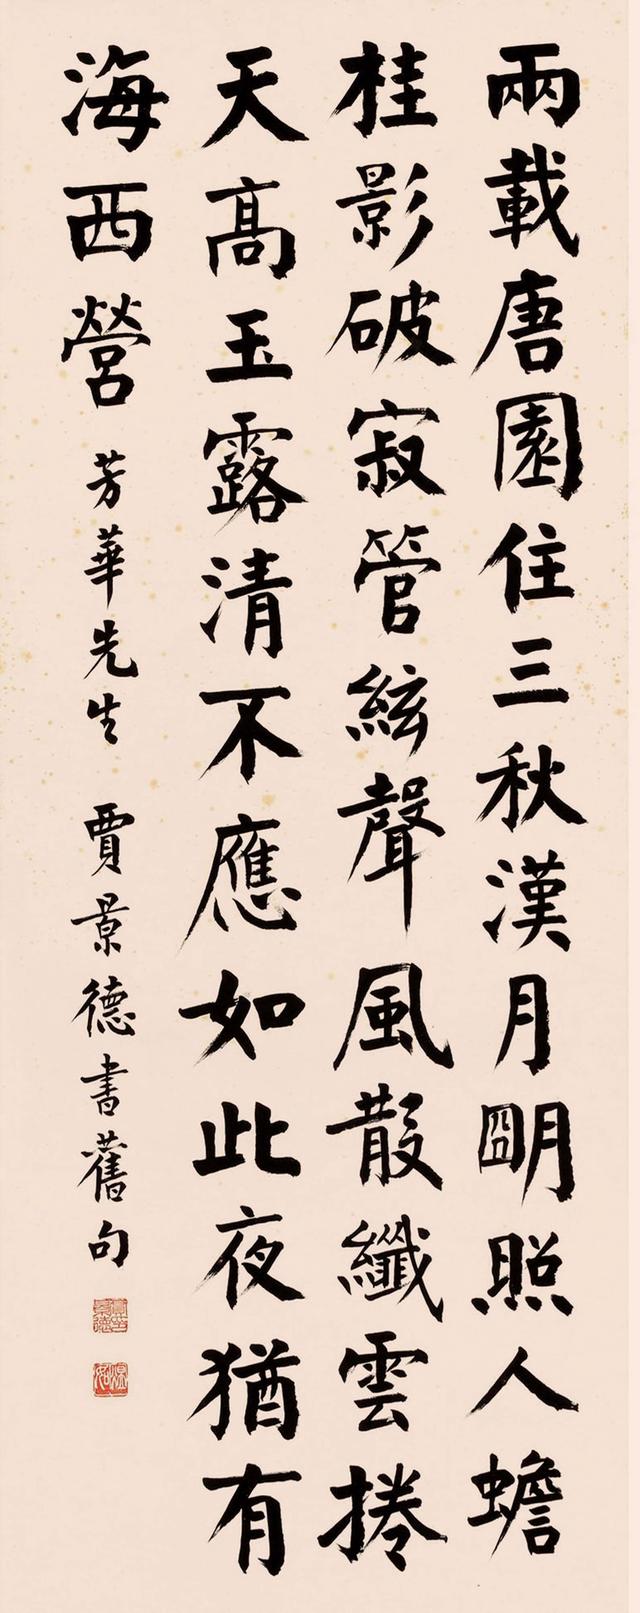 兩載唐園住三秋漢月朙照人蟾
桂影破寂管絃聲風散纖雲捲
天高玉露清不應如此夜猶有
海西營 芳華先生 賈景德書舊句
賈景德